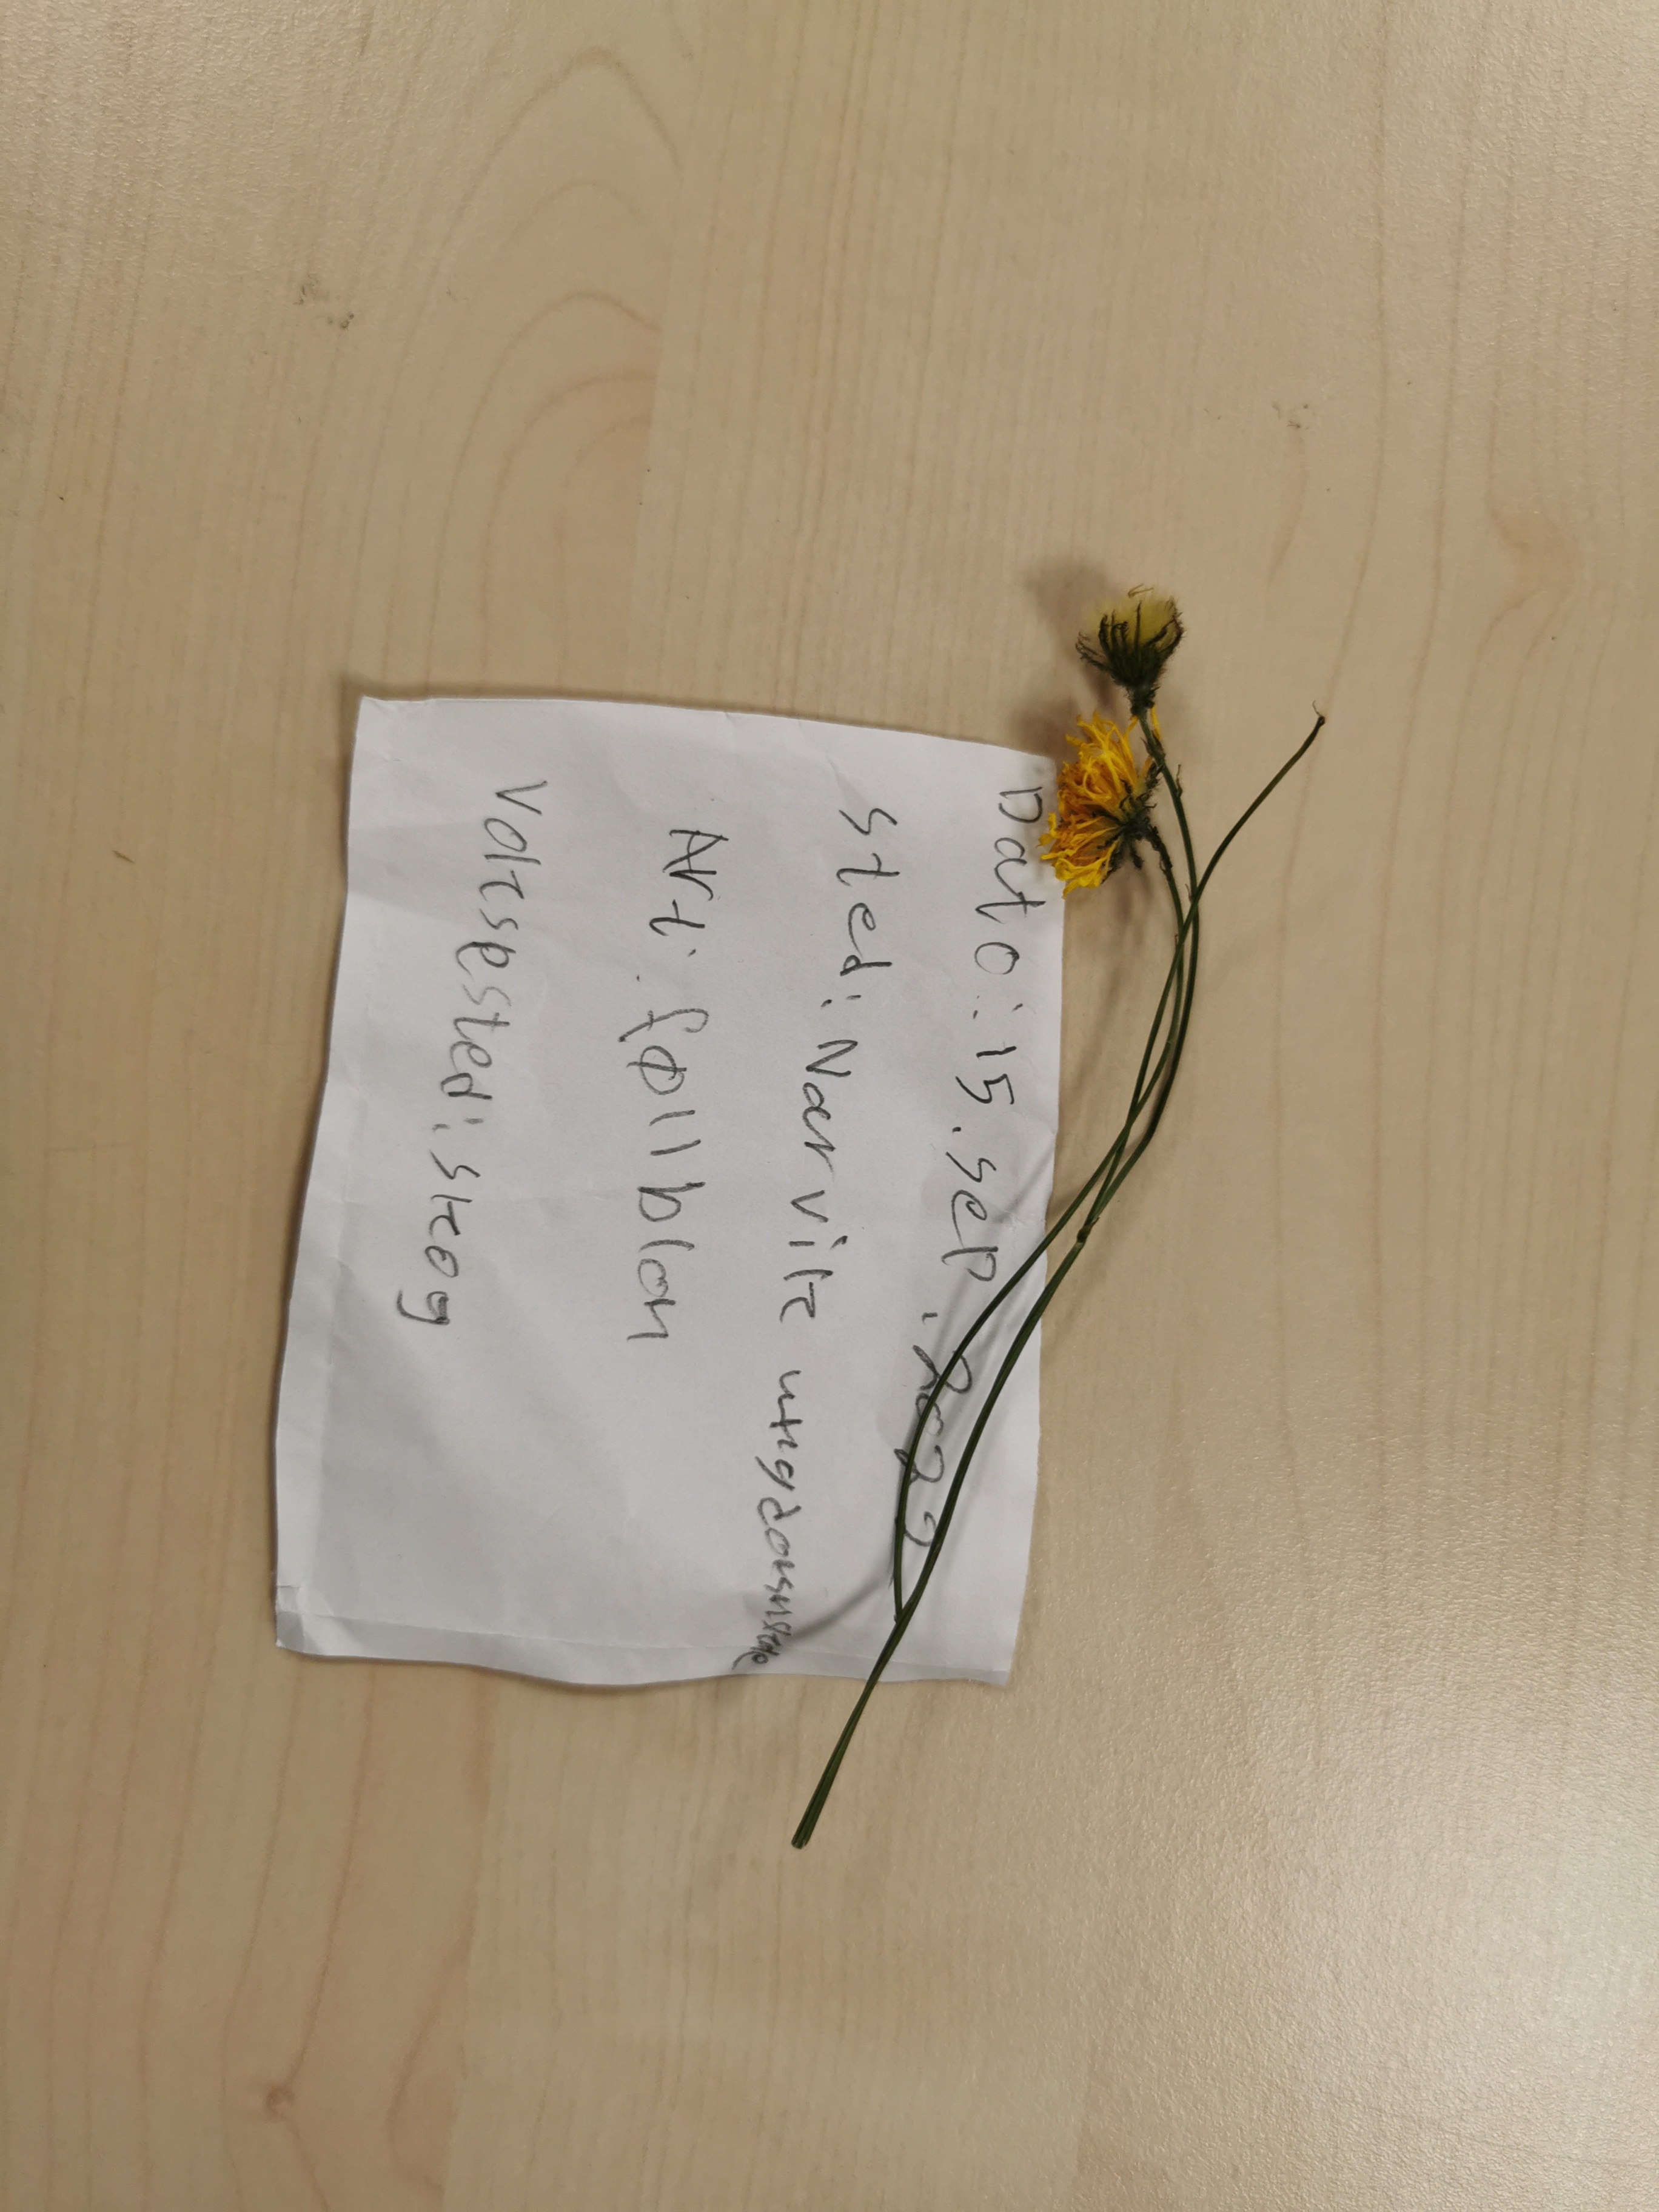 Dato: 15. sep. 2029
Sted: Narvik ungdomsskole
Art: føllblom
Voksested: skog